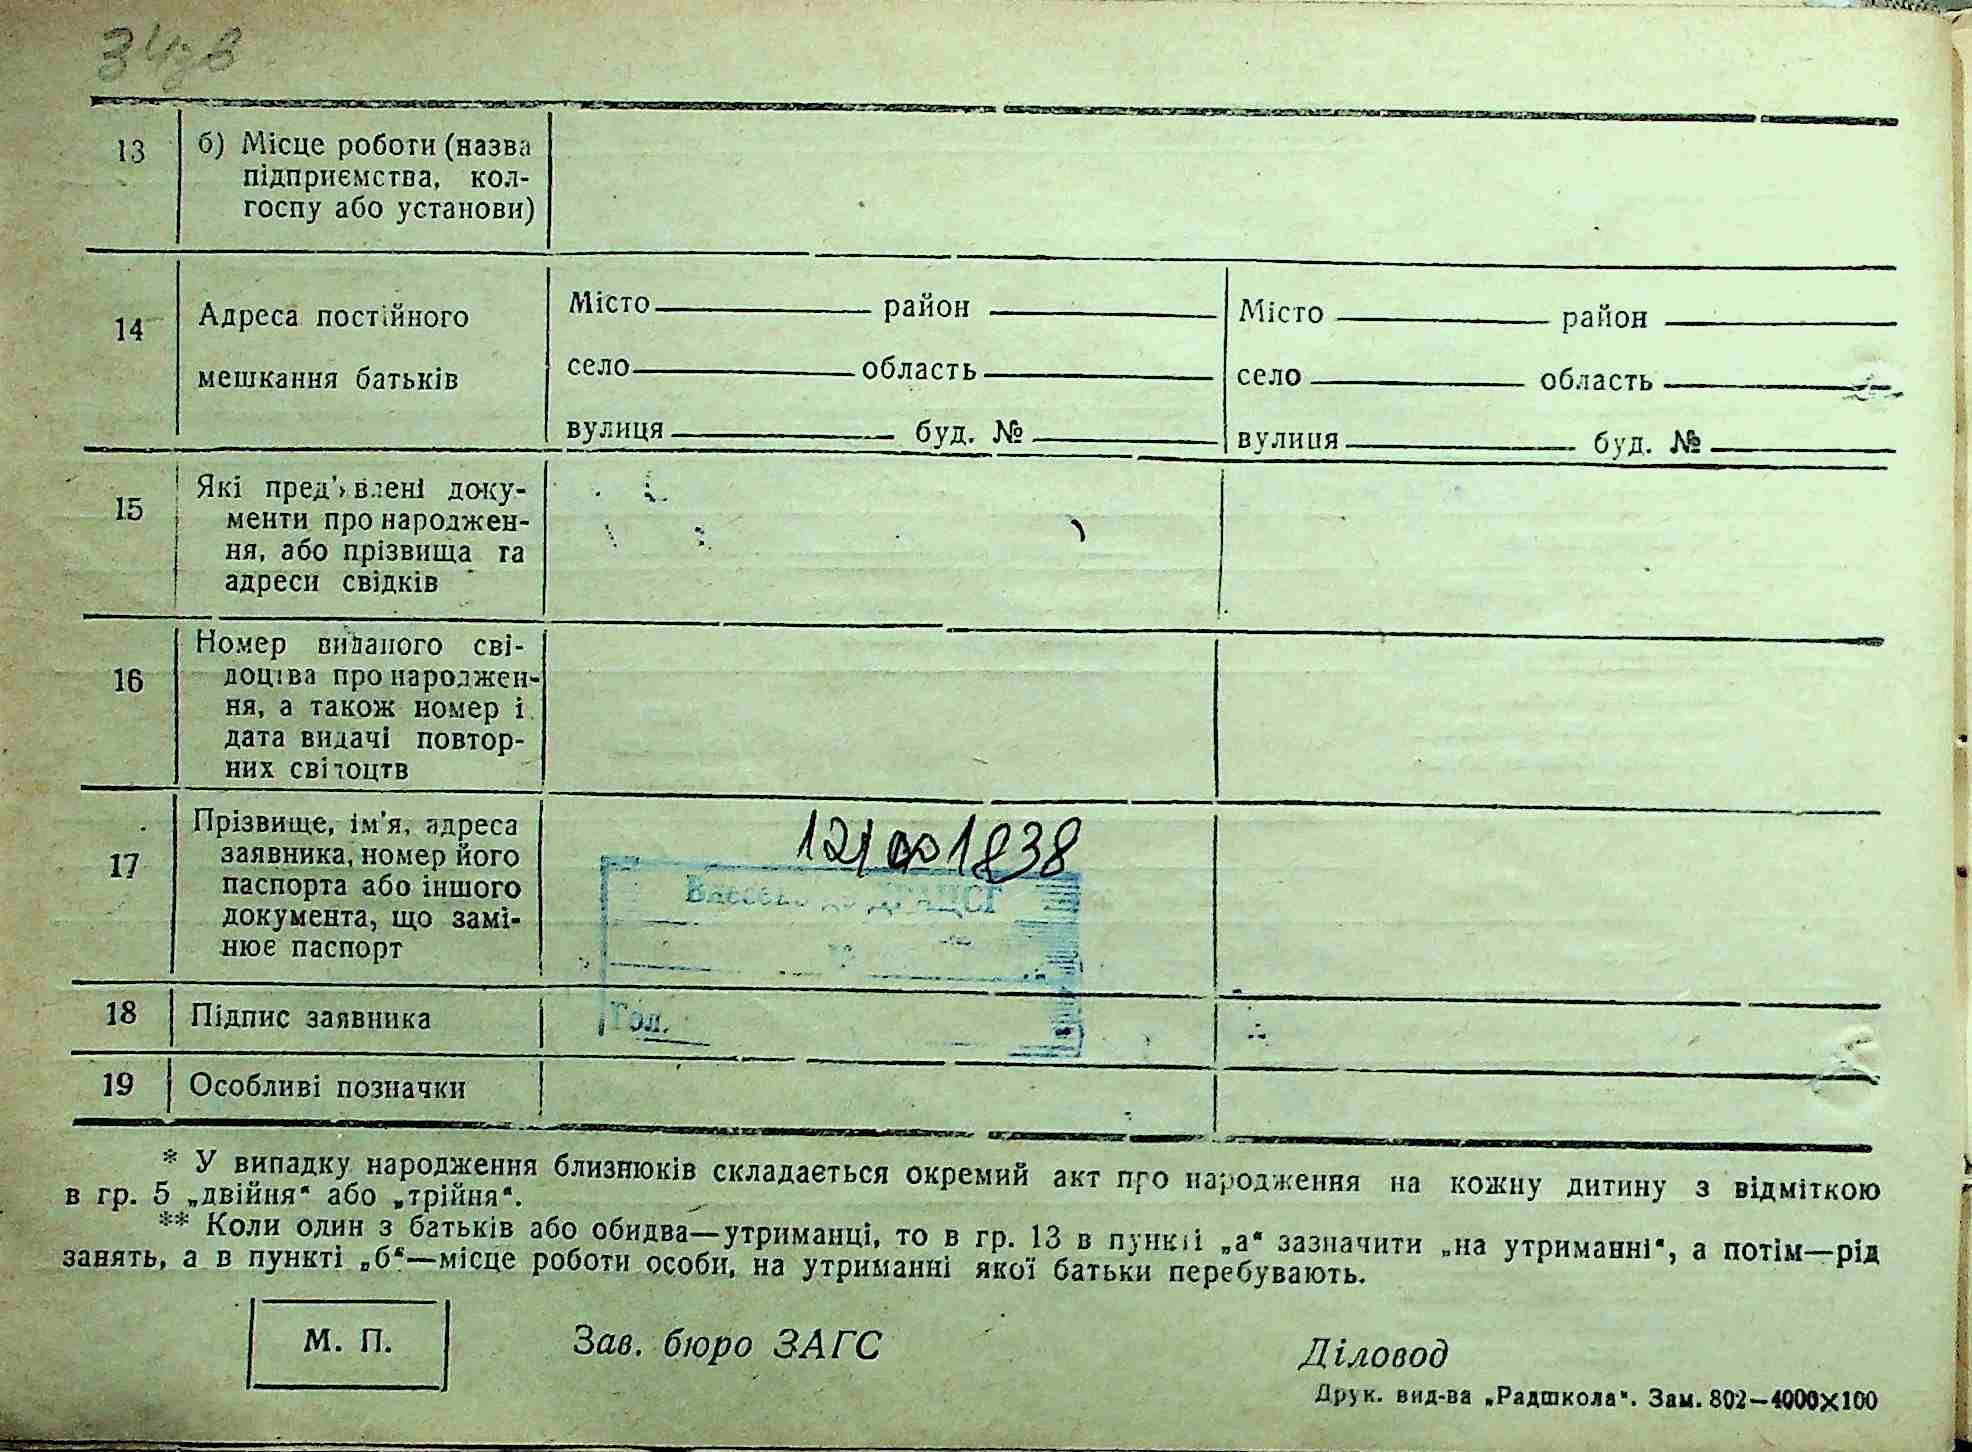 34зв
13 б) Місце роботи (назва
підприємства, кол-
госпу або установи)
14 Адреса постійного
мешкання батьків
Місто район
село область
вулиця буд. №
Місто район
село область
вулиця буд. №
15 Які пред'явлені доку-
менти про народжен-
ня, або прізвища та
адреси свідків
16 Номер виданого сві-
доцтва про народжен-
ня, а також номер і
дата видачі повтор-
них свідоцтв
17 Прізвище, ім'я, адреса
заявника, номер його
паспорта або іншого
документа, що замі-
нює паспорт
ДРАЦСГ
Гол.
18 Підпис заявника
19 Особливі позначки
* У випадку народження близнюків складається окремий акт про народження на кожну дитину з відміткою
в гр. 5 „двійня“ або „трійня“.
** Коли один з батьків або обидва—утриманці, то в гр. 13 в пункті „а“ зазначити „на утриманні“, а потім—рід
занять, а в пункті „б“—місце роботи особи, на утриманні якої батьки перебувають.
М. П.
Зав. бюро ЗАГС
Діловод
Друк. вид-ва „Радшкола“. Зам. 802—4000×100